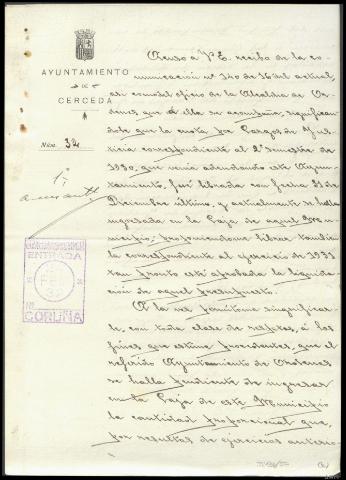 AYUNTAMIENTO
DE
CERCEDA
Núm. 32
ENTRADA
CORUÑA
Acuso á V. E. recibo de la co-
municación nº 140 de 16 del actual
así como del oficio de la Alcaldía de Or-
denes que á ella se acompaña, significan-
dole que la cuota por Cargas de Jus-
ticia correspondiente al 2º semestre de
1930, que venía adeudando este Ayun-
tamiento, fué librada con fecha 31 de
Diciembre último, y actualmente se halla
ingresada en la Caja de aquel Mu-
nicipio, proponiendome librar tambien
la correspondiente al ejercicio de 1931
tan pronto esté aprobada la liquida-
ción de aquel presupuesto.
A la vez permítome significar-
le, con toda clase de respetos, á los
fines que estime procedentes, que el
referido Ayuntamiento de Ordenes
se halla pendiente de ingresar
en la Caja de este Municipio
la cantidad proporcional que,
por resultas de ejercicios anterio-